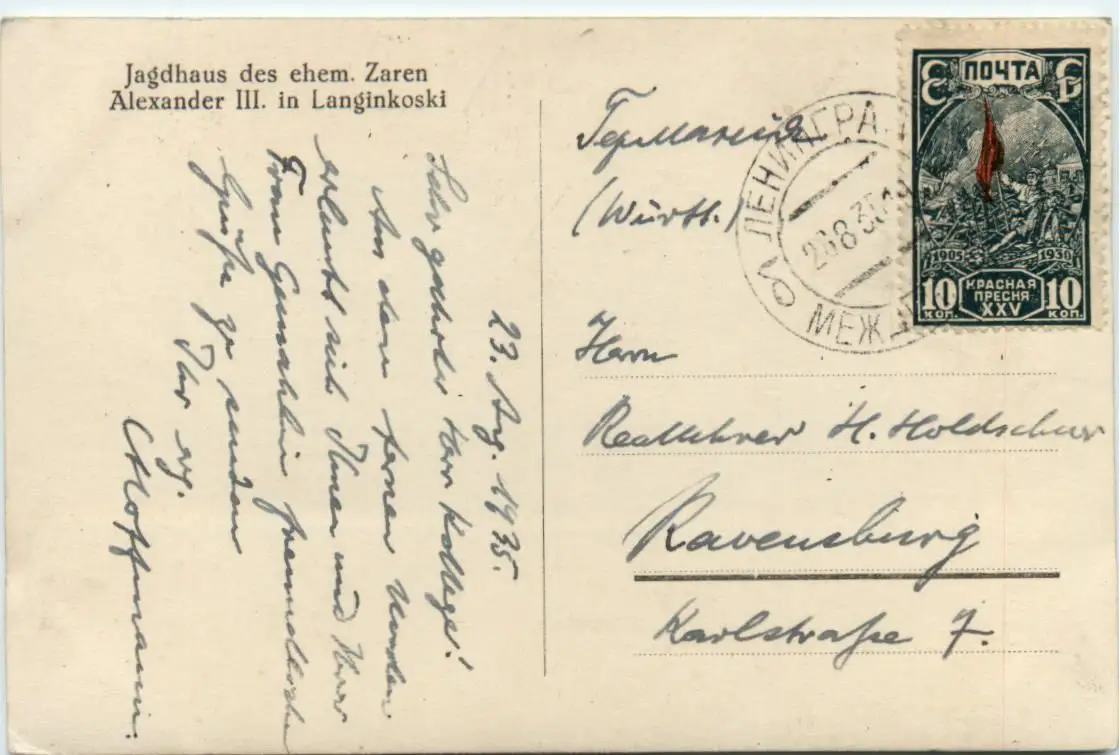 Jagdhaus des ehem. Zaren
Alexander III. in Langinkoski
23. Aug. 1935.
Sehr geehrter Herr Kollege!
Aus dem fernen Norden
erlaubt sich Ihnen und Ihrer
Frau Gemahlin freundliche
Grüße zu senden
Ihr erg.
Hoffmann.
Германия
(Württ.)
Herrn
Reallehrer H. Holdschuer
Ravensburg
Karlstraße 7.
ЛЕНИНГРА
28 8 35
МЕЖД
ПОЧТА
1905 1930
10 КОП.
КРАСНАЯ
ПРЕСНЯ
XXV
10 КОП.